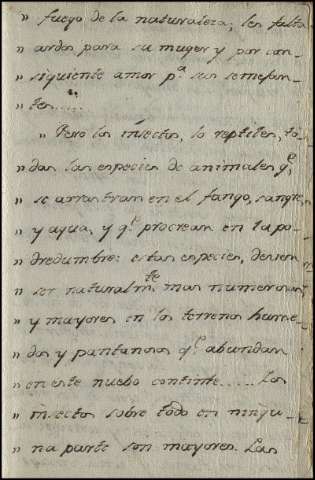 " fuego de la naturaleza; les falta
" ardor para su muger y por con-
" siguiente amor pª sus semejan-
" tes.....
" Pero los insectos, lo reptiles, to-
" das las especies de animales q.ᵉ
" se arrastran en el fango, sangre,
" y agua, y q.ᵉ procrean en la po-
" dredumbre: estas especies, deven
" ser naturalmᵗᵉ mas numerosas
" y mayores en los terrenos hume-
" dos y pantanosos q.ᵉ abundan
" en este nuebo continte..... Los
" insectos sobre todo en ningu-
" na parte son mayores. Las